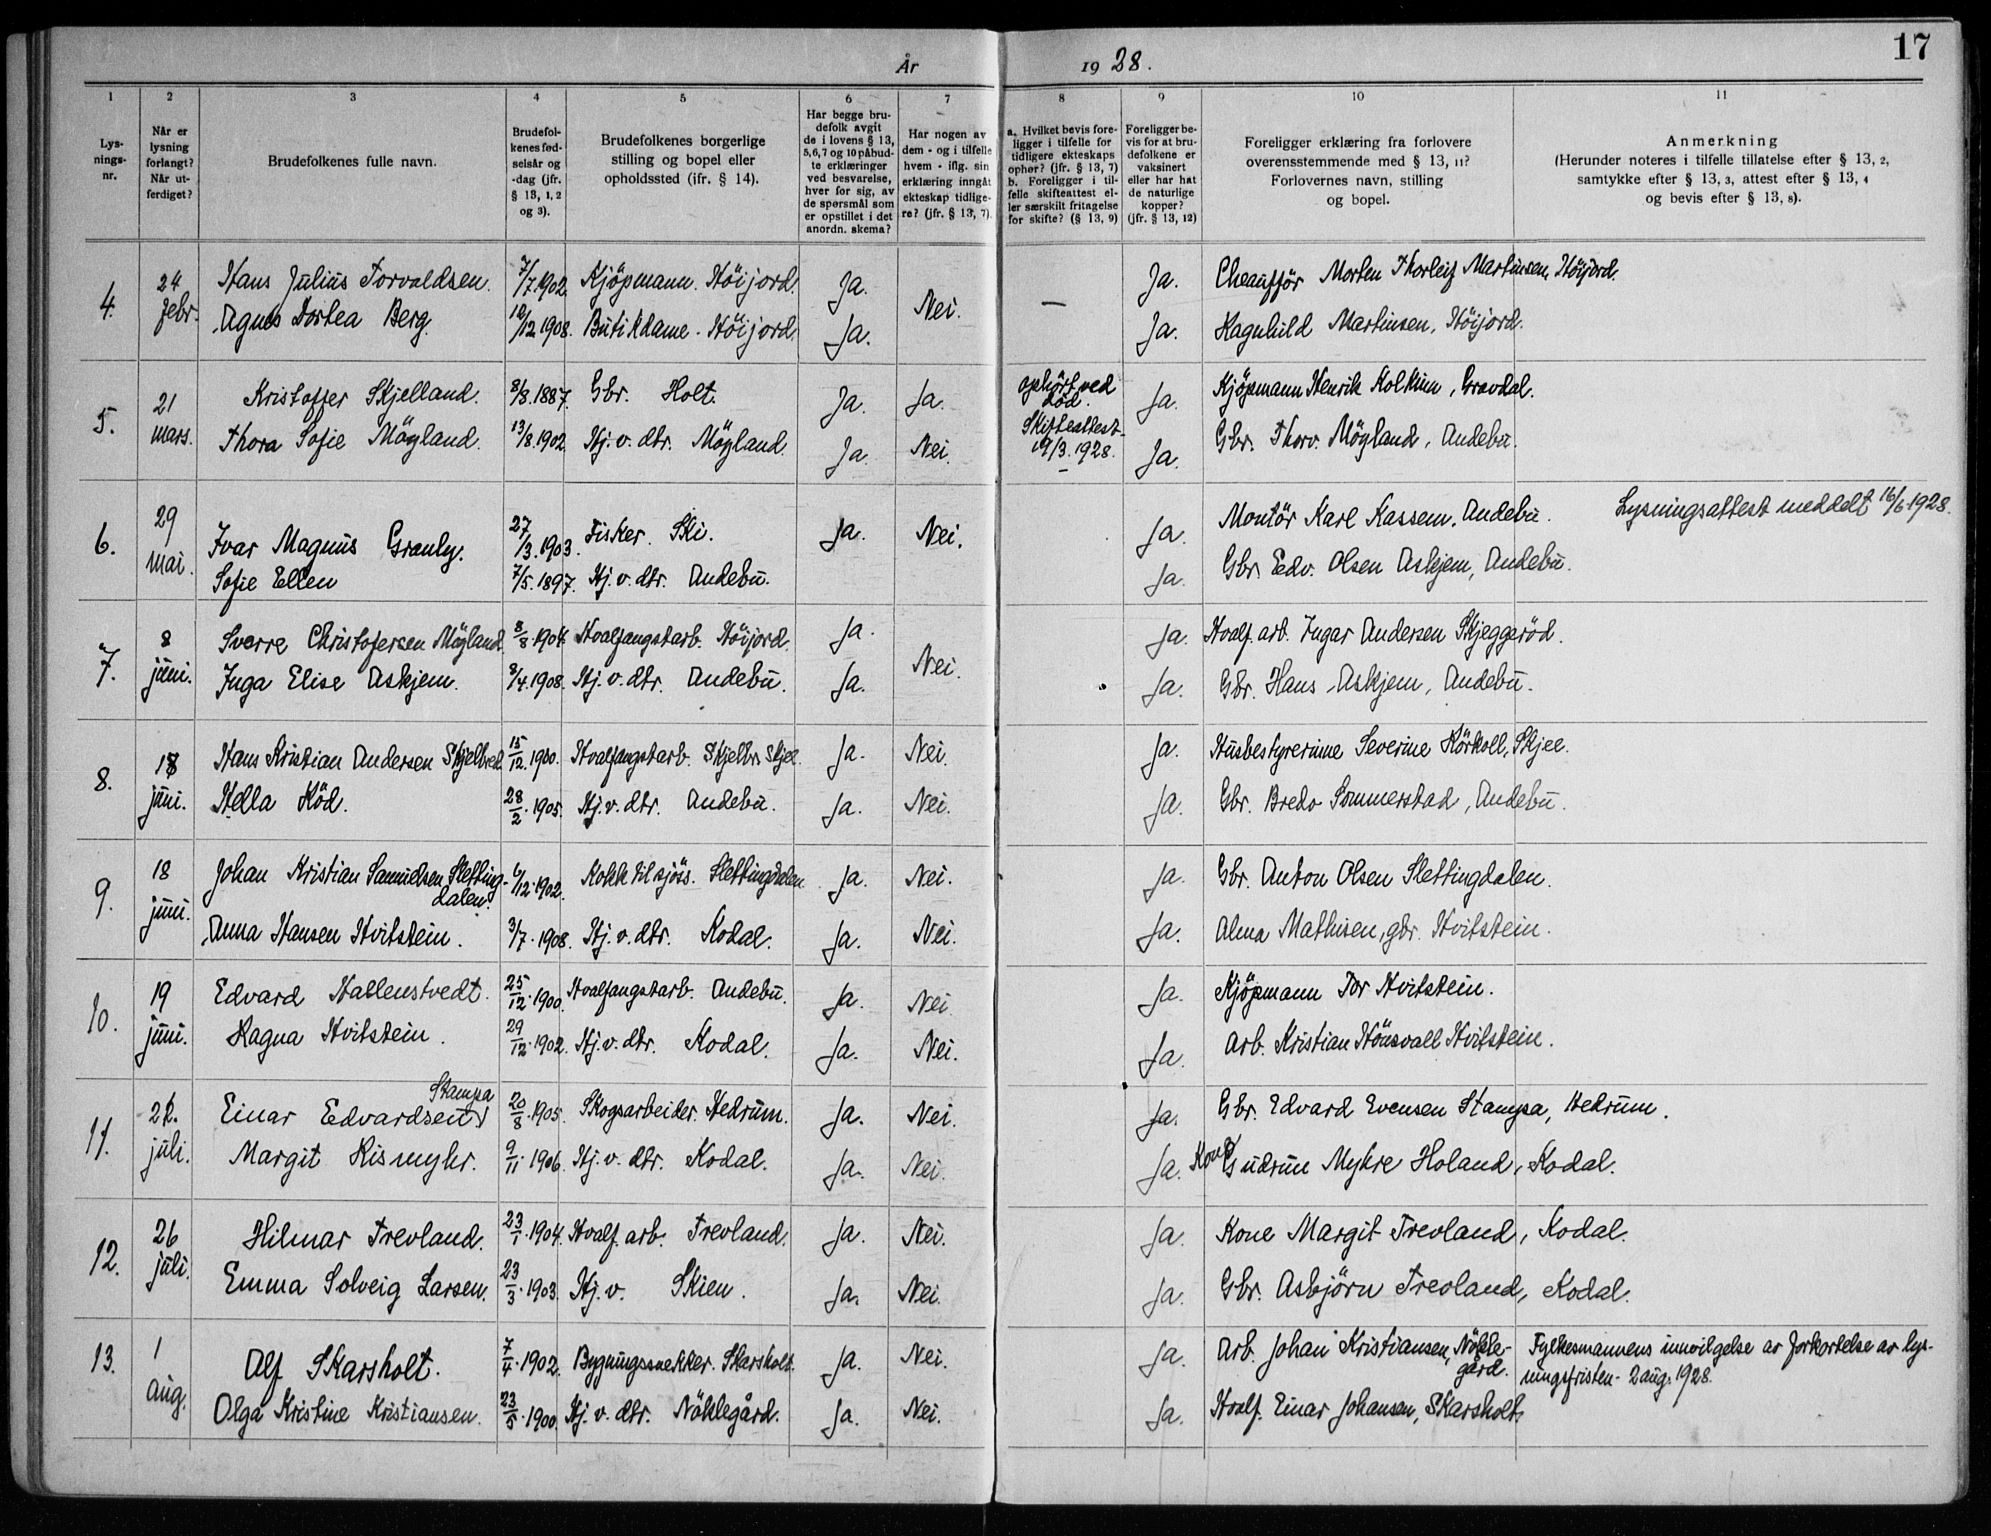 17
År 1928.
1 2 3 4 5 6 7 8 9 10 11
Lys-
nings-
nr.
Når er
lysning
forlangt?
Når ut-
ferdiget?
Brudefolkenes fulle navn.
Brudefol-
kenes fød-
selsår og
-dag (jfr.
§ 13, 1, 2
og 3).
Brudefolkenes borgerlige
stilling og bopel eller
opholdssted (ifr. § 14).
Har begge bru-
defolk avgit
de i lovens § 13,
5,6,7 og 10 påbud-
te erklæringer
ved besvarelse,
hver for sig, av
de spørsmål som
er opstillet i det
anordn. skema?
Har nogen av
dem - og i tilfelle
hvem - iflg. sin
erklæring inngåt
ekteskap tidlige-
re? (jfr. § 13, 7).
a. Hvilket bevis fore-
ligger i tilfelle for
tidligere ekteskaps
ophør? (jfr. § 13, 7)
b. Foreligger i til-
felle skifteattest el-
ler særskilt fritagelse
for skifte? (§ 13, 9)
Foreligger be-
vis for at bru-
defolkene er
vaksinert
eller har hat
de naturlige
kopper?
(jfr. § 13, 12)
Foreligger erklæring fra forlovere
overensstemmende med § 13, 11?
Forlovernes navn, stilling
og bopel.
Anmerkning
(Herunder noteres i tilfelle tillatelse efter § 13, 2,
samtykke efter § 13, 3, attest efter § 13, 4
og bevis efter § 13, 8).
4. 24 febr. Hans Julius Torvaldsen. 7/7.1902. Kjöpmann. Höijord. Ja. Nei. — Ja. Cheafför Morten Thorleif Martinsen, Höijord.
Agnes Dortea Berg. /12.1908. Butikdame. Höijord. Ja. Ja. Ragnhild Martinsen, Höijord.
5. 21 mars. Kristoffer Skjelland. 8/8.1887. Gbr. Holt. Ja. Ja. ophört ved död. Ja. Kjöpmann Henrik Kolkinn, Gravdal.
Thora Sofie Mögland. 13/8.1902. Hj.v.dtr. Mögland. Ja. Nei. Skifteattest 19/3.1928. Ja. Gbr. Thorv. Mögland, Andebu.
6. 29 mai. Ivar Magnus Granly. 27/3.1903. Fisker. Ski. Ja. Nei. Ja. Montör Karl Kassem. Andebu. Lysningsattest meddelt 16/6 1928.
Sofie Ellen 7/5.1897. Hj.v.dtr. Andebu. Ja. Gbr. Edv. Olsen Askjem, Andebu.
7. 8 juni. Sverre Christofersen Mögland 8/8.1904. Hvalfangstarb. Höijord. Ja. Nei. Ja. Hvalf. arb. Ingar Andersen Skjeggeröd.
Inga Elise Askjem. 8/4.1908. Hj.v.dtr. Andebu. Ja. Ja. Gbr. Hans Askjem, Andebu.
8. 18 juni. Hans Kristian Andersen Skjelbred. 15/12.1900. Hvalfangstarb. Skjelbr. Skjee. Ja. Nei. Ja. Husbestyrerinne Severine Körkoll, Skjee.
Hella Röd. 28/2.1905. Hj.v.dtr. Andebu. Ja. Nei. Ja. Gbr. Bredo Sommerstad, Andebu.
9. 18 juni. Johan Kristian Samuelsen Sletting-
dalen. 6/12.1902. Kokk til sjös. Slettingdalen. Ja. Nei. Ja. Gbr. Anton Olsen Slettingdalen.
Anna Hansen Hvitstein. 3/7.1908. Hj.v.dtr. Kodal. Ja. Nei. Ja. Alma Mathisen, gbr. Hvitstein.
10. 19 juni. Edvard Hallenstvedt. 25/12.1900. Hvalfangstarb. Andebu. Ja. Nei. Ja. Kjöpmann Tor Hvitstein.
Ragna Hvitstein. 29/12.1902. Hj.v.dtr. Kodal. Ja. Nei. Ja. Arb. Kristian Hönsvall Hvitstein.
11. 2 juli. Einar Edvardsen Stampa 20/8.1905. Skogsarbeider. Hedrum. Ja. Nei. Ja. Gbr. Edvard Evensen Stampa, Hedrum.
Margit Rismyhr. 9/11.1906. Hj.v.dtr. Kodal. Ja. Nei. Ja. Kone Gudrun Myhre Holand, Kodal.
12. 26 juli. Hilmar Trevland. 23/1.1904. Hvalf. arb. Trevland. Ja. Nei. Ja. Kone Margit Trevland, Kodal.
Emma Solveig Larsen. 23/3.1903. Hj.v. Skien. Ja. Nei. Ja. Gbr. Asbjörn Trevland, Kodal.
13. 1 aug. Alf Skarsholt. 7/4.1902. Bygningssnekker. Skarsholt. Ja. Nei. Ja. Arb. Johan Kristiansen, Nökle-
gård. Fylkesmannens innvilgelse av forkortelse av lys-
ningsfristen - 2 aug. 1928.
Olga Kristine Kristiansen. 23/5.1900. Hj.v.dtr. Nöklegård. Ja. Nei. Ja. Hvalf. Einar Johansen, Skarsholt.